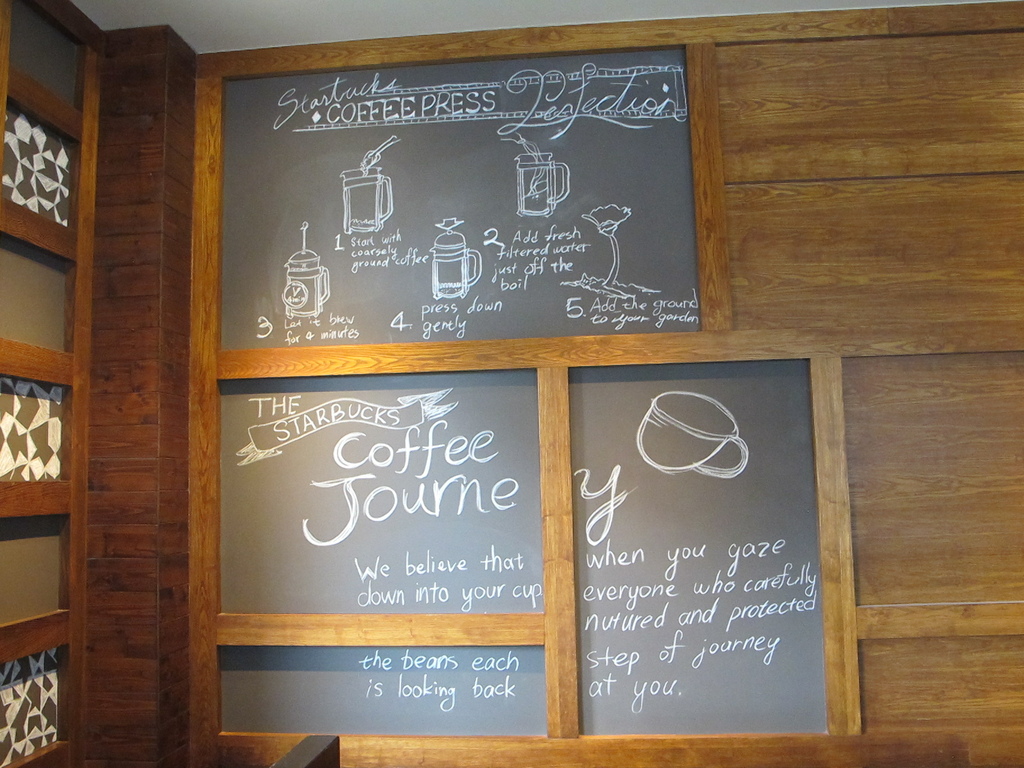 Starbucks
COFFEE PRESS Perfection
1 Start with
coarsely
ground coffee
2. Add fresh
filtered water
just off the
boil
3 Let it brew
for 4 minutes
4. press down
gently
5. Add the ground
to your garden
THE
STARBUCKS
Coffee
Journe y
We believe that when you gaze
down into your cup everyone who carefully
nutured and protected
the beans each step of journey
is looking back at you.